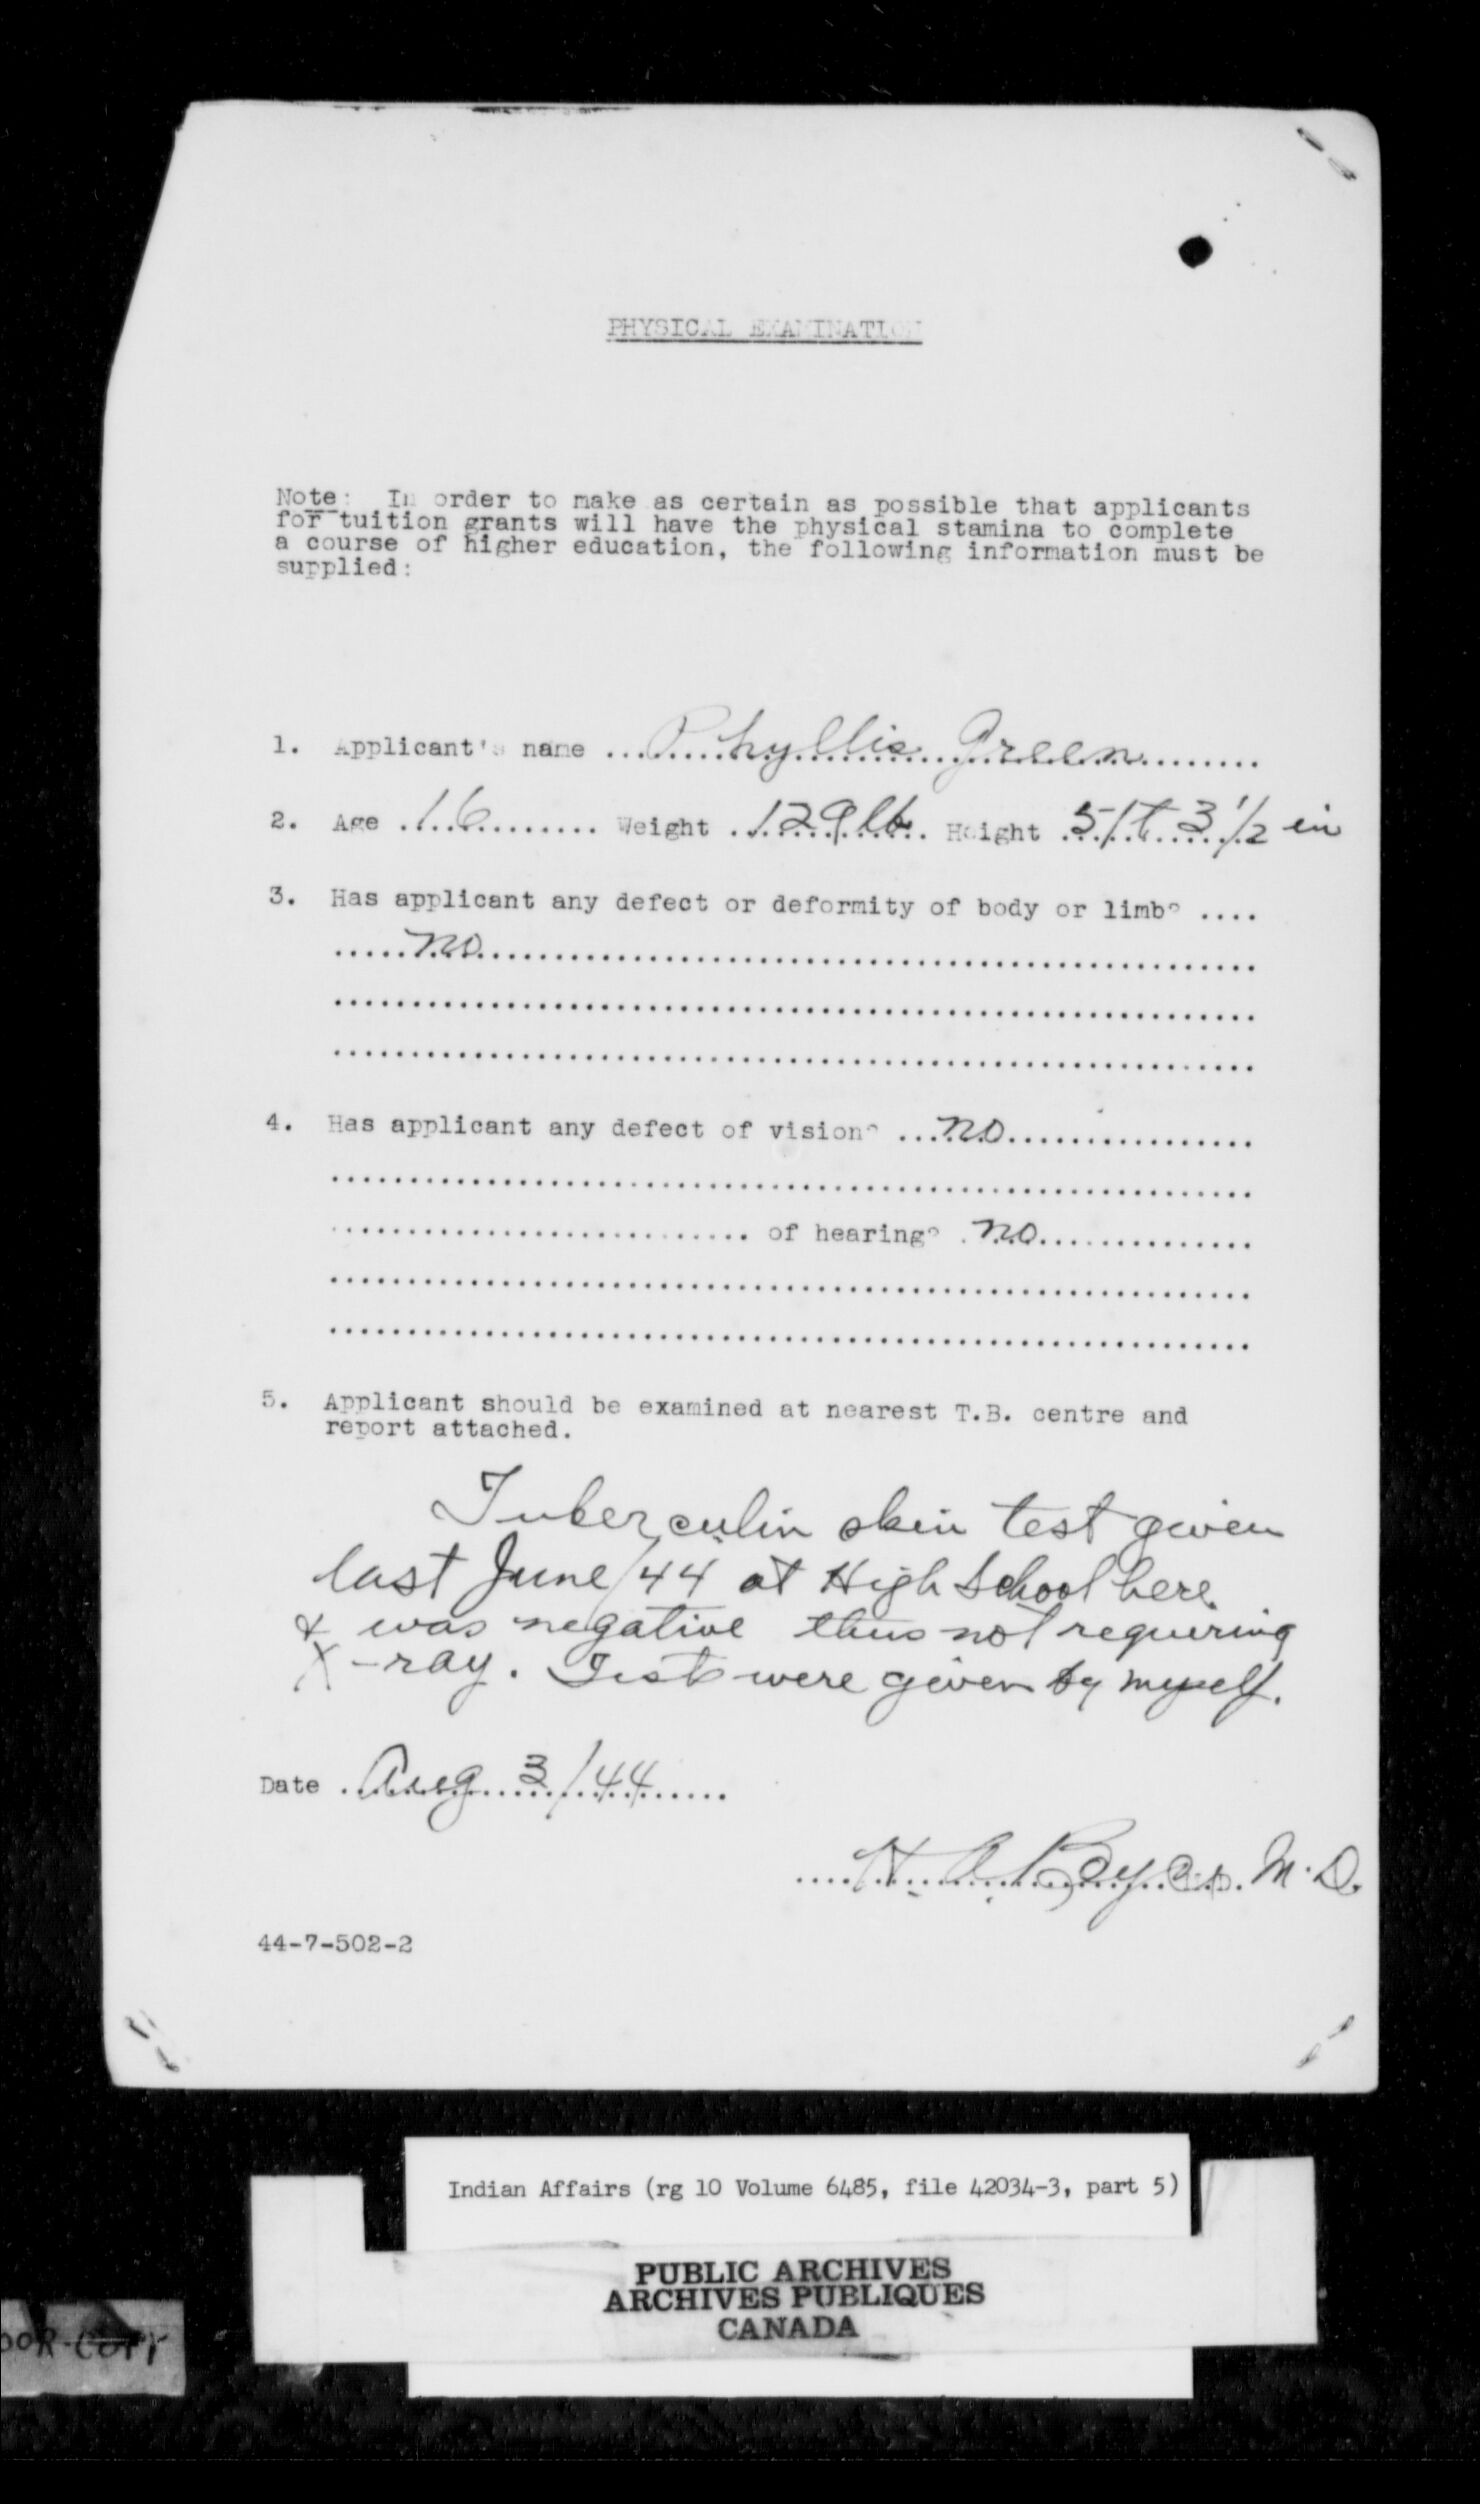 PHYSICAL EXAMINATION
Note: In order to make as certain as possible that applicants
for tuition grants will have the physical stamina to complete
a course of higher education, the following information must be
supplied:
1. Applicant's name ... Phyllis Green
2. Age 16 Weight 129 lb Height 5 ft 3 1/2 in
3. Has applicant any defect or deformity of body or limb? ....
no
4. Has applicant any defect of vision? ... no
of hearing? no
5. Applicant should be examined at nearest T.B. centre and
report attached.
Tuberculin skin test given
last June/44 at High School here
& was negative thus not requiring
X-ray. Test were given by myself.
Date Aug 3/44
H. A. Boyce M.D.
44-7-502-2
Indian Affairs (rg 10 Volume 6485, file 42034-3, part 5)
PUBLIC ARCHIVES
ARCHIVES PUBLIQUES
CANADA
OOR COPY